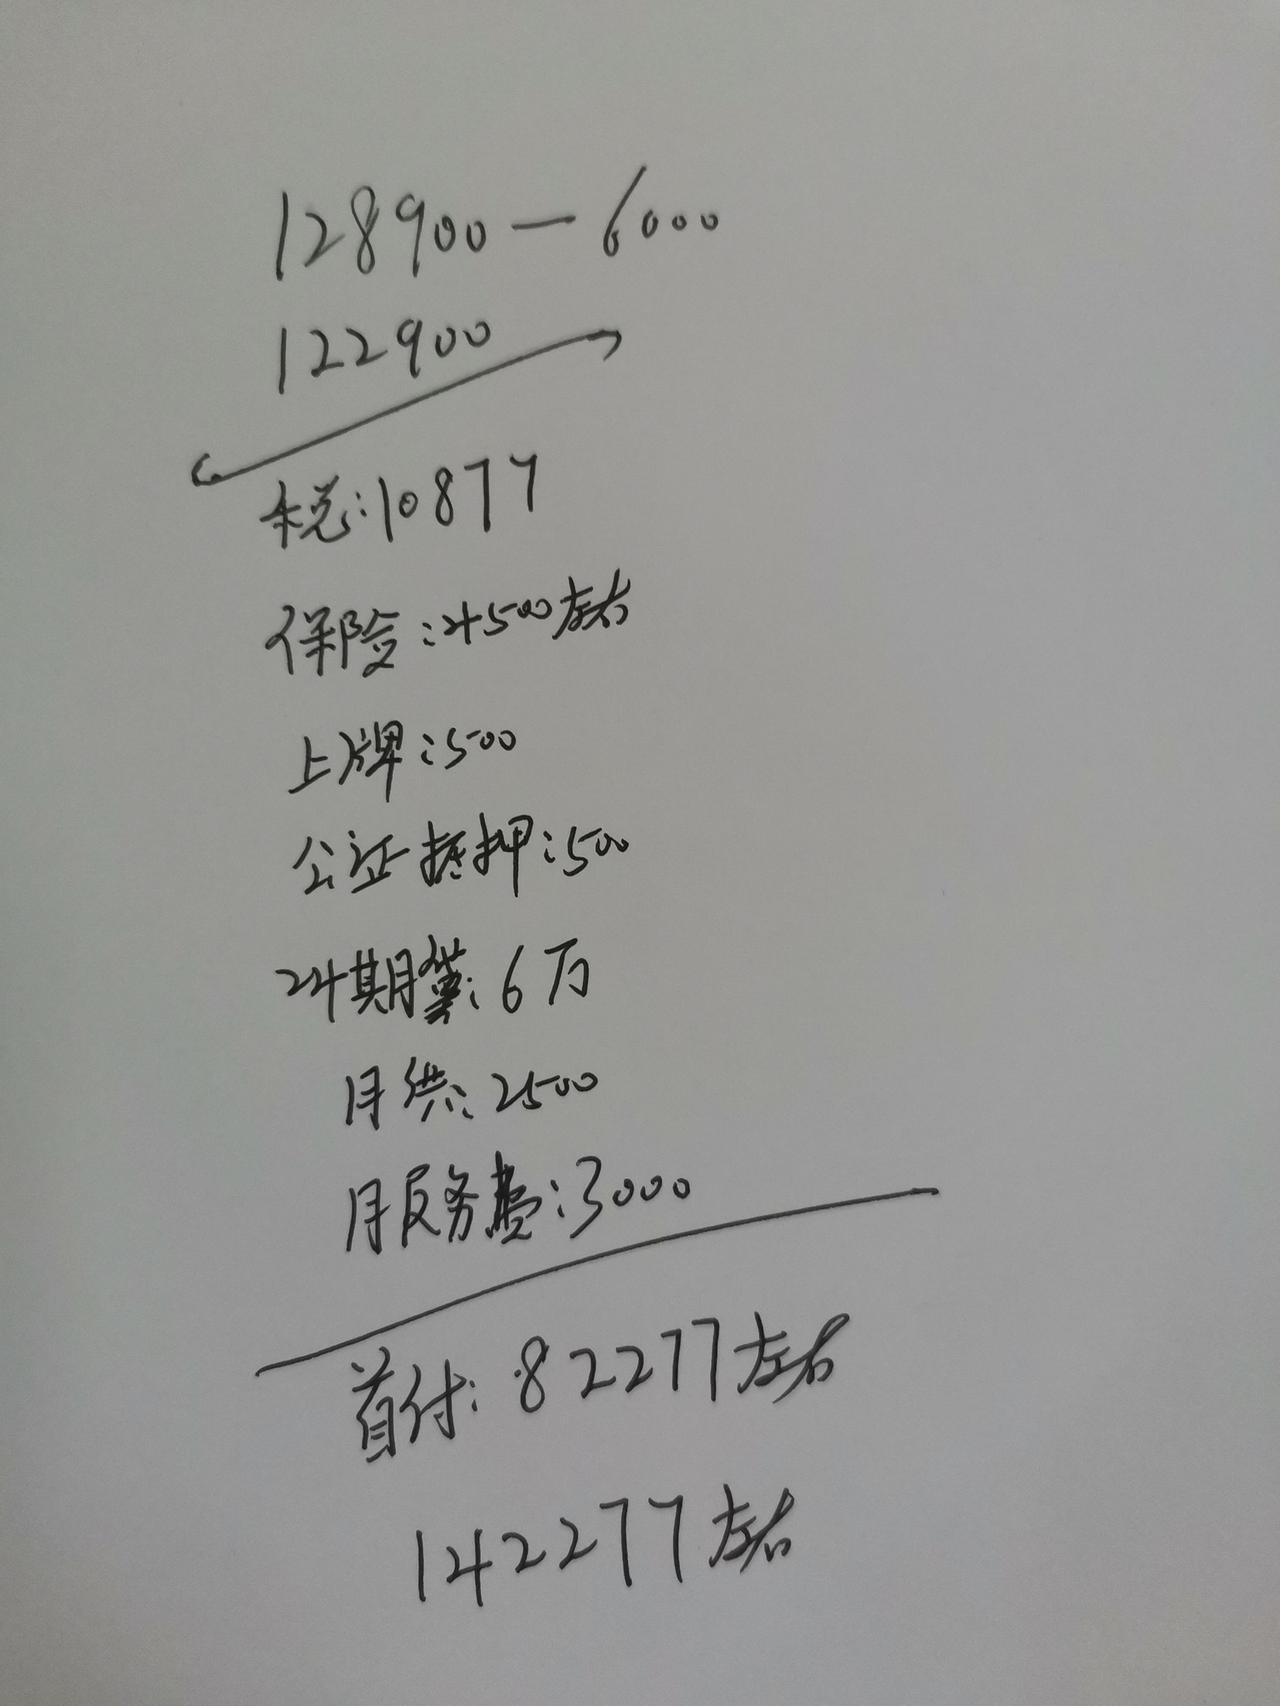 128900-6000
122900
税:10877
保险:4500左右
上牌:500
公证抵押:500
24期:6万
月供:2500
月服务费:3000
首付:82277左右
142277左右